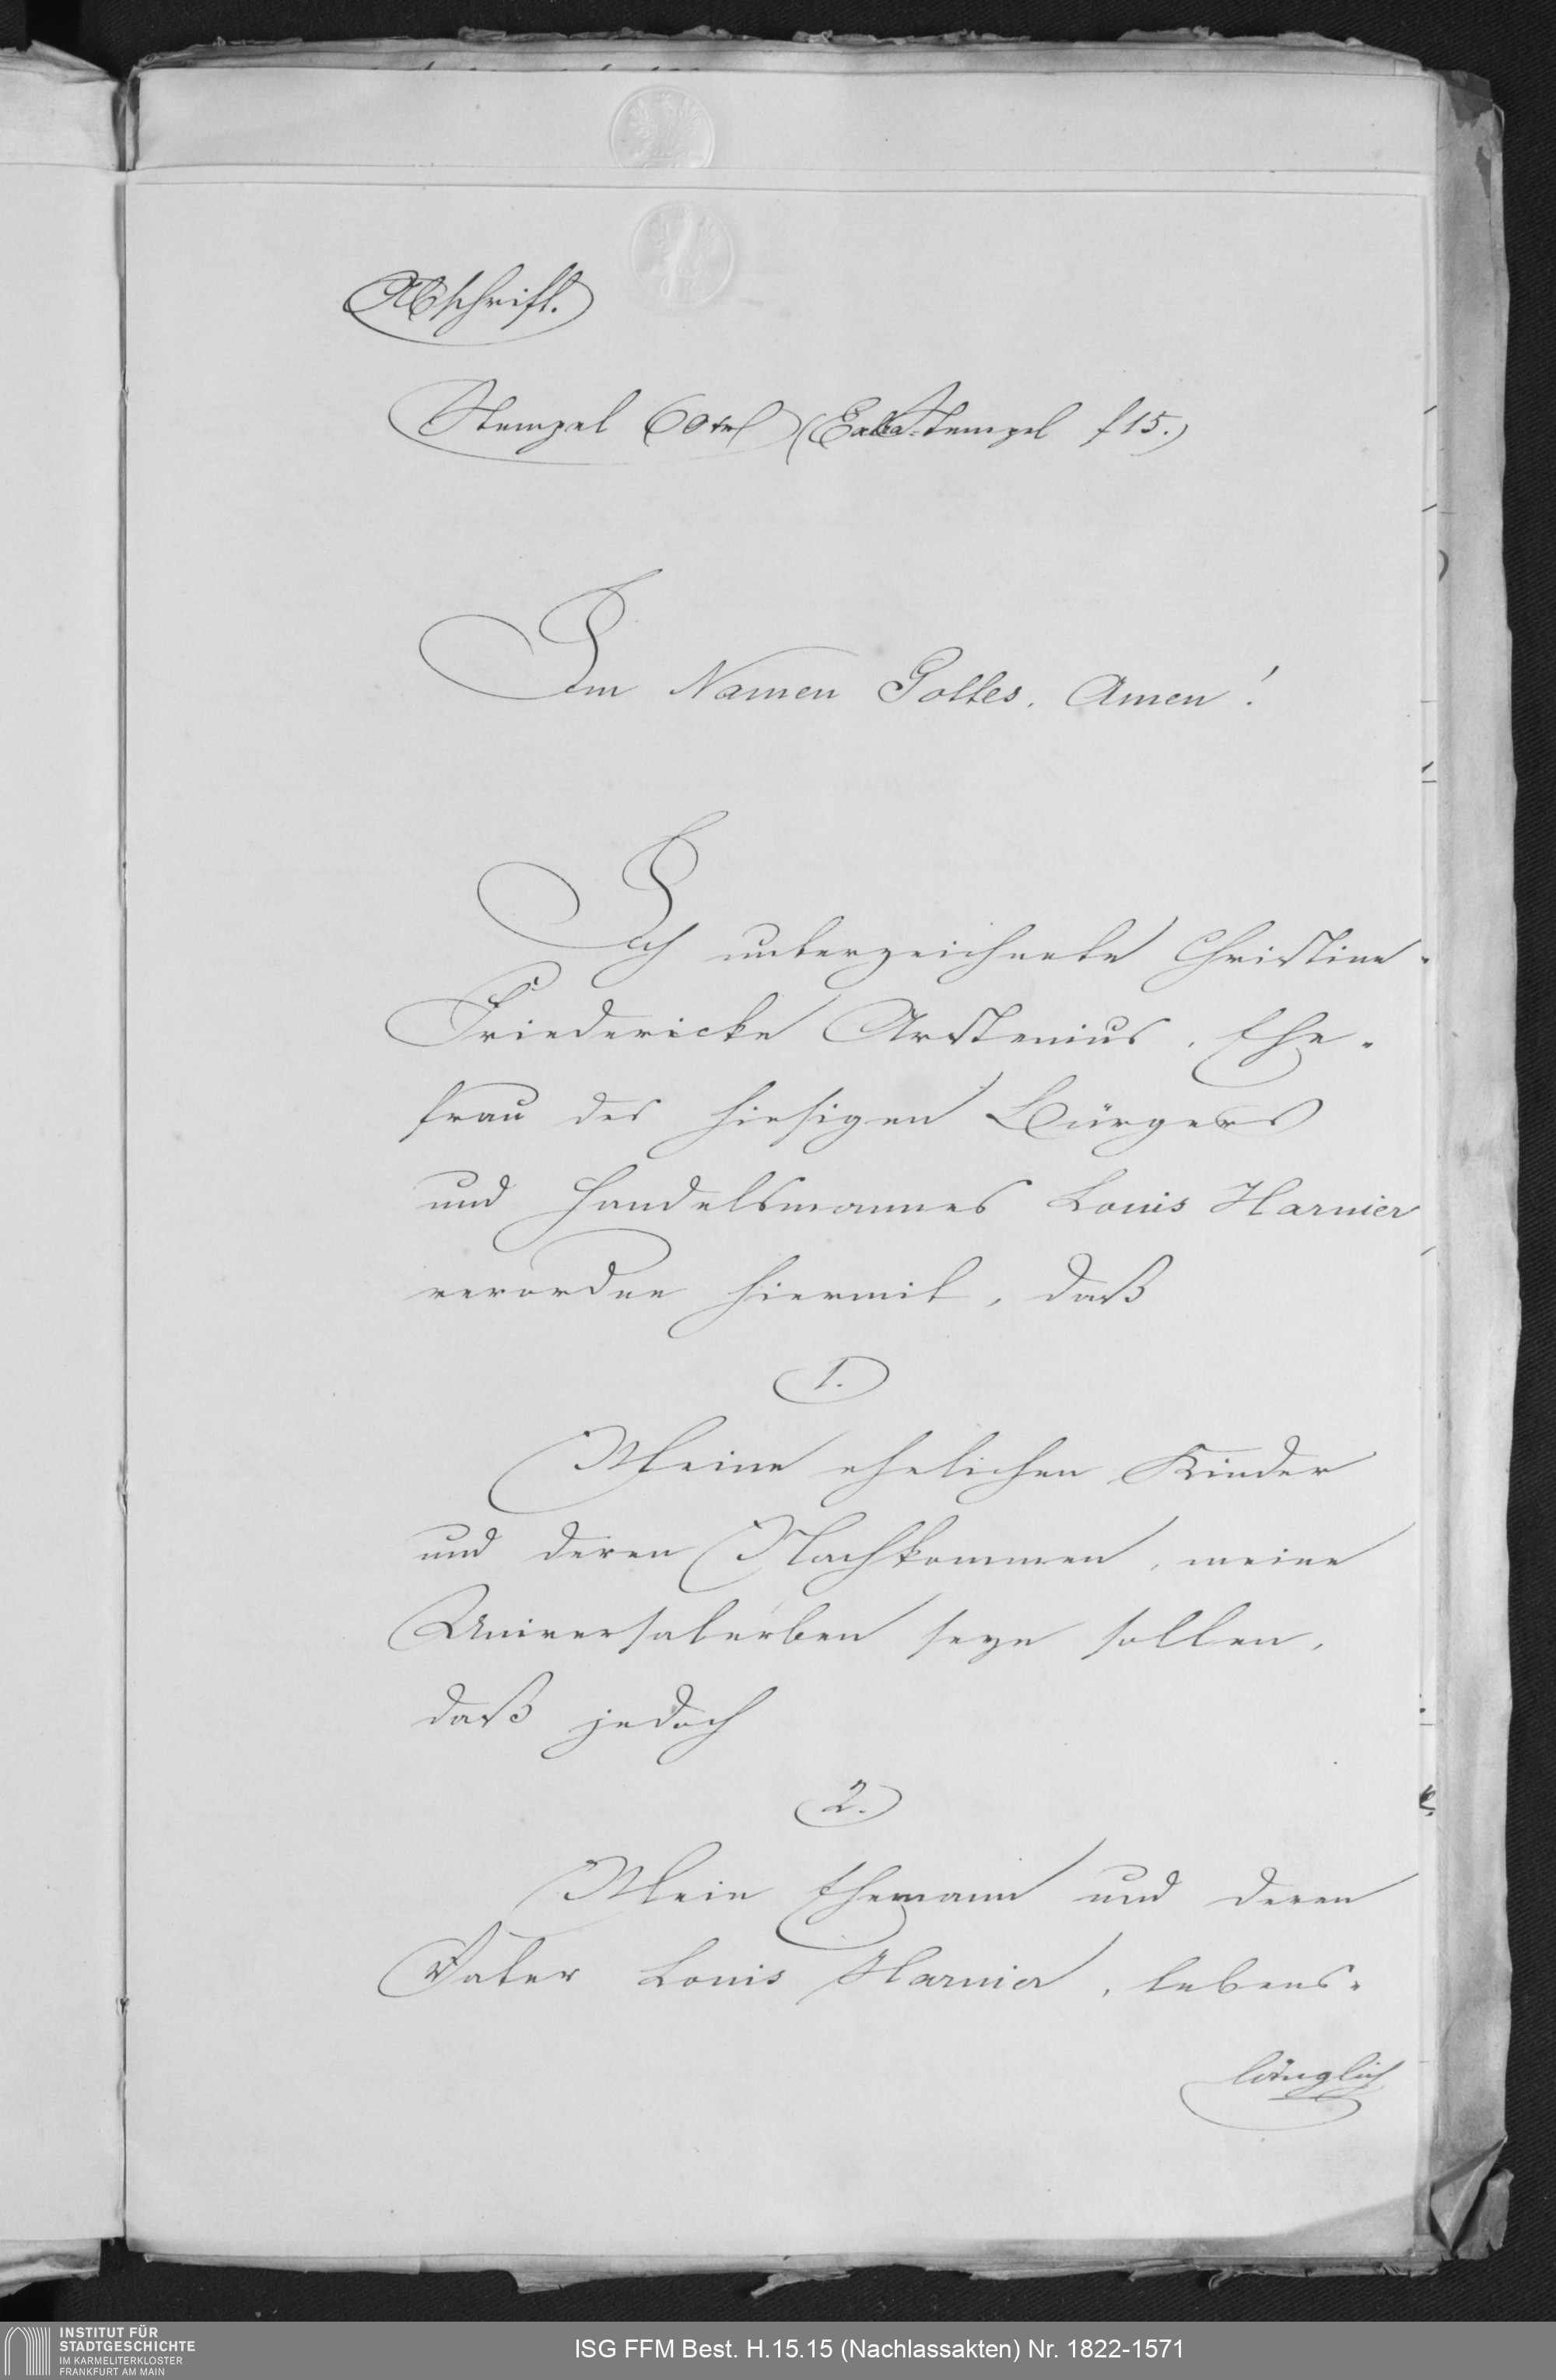 Abschrift.
Stempel 60 (Extra-Stempel f 15.)
Im Namen Gottes. Amen!
Ich unterzeichnete Christine
Friedericke Arstenius, Ehe-
frau des hiesigen Bürgers
und Handelsmannes Louis Harnier
verordne hiermit, daß
1.
Meine ehelichen Kinder
und deren Nachkommen, meine
Universalerben seyn sollen,
daß jedoch
2.
Mein Ehemann und deren
Vater Louis Harnier, lebens-
länglich
INSTITUT FÜR
STADTGESCHICHTE
IM KARMELITERKLOSTER
FRANKFURT AM MAIN
ISG FFM Best. H.15.15 (Nachlassakten) Nr. 1822-1571